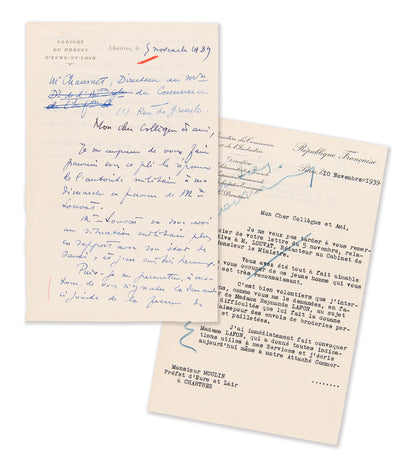 CABINET
DU PRÉFET
D'EURE-ET-LOIR
Chartres, le 5 novembre 1939
Mr Chausset, Directeur au Mre
du Commerce
Rue de Grenelle
Mon cher Collègue et ami,
Je m'empresse de vous faire
parvenir sous ce pli la réponse
de l'autorité militaire à ma
démarche en faveur de Mr
Louvat.
Mr Louvat va donc avoir
une situation militaire plus
en rapport avec son état de
santé, et j'en suis très heureux.
Puis-je me permettre, à mon
tour, de vous signaler la demande
ci-jointe de
Ministère du Commerce
et de l'Industrie
République Française
Direction
10 Novembre 1939
Mon Cher Collègue et Ami,
Je ne veux pas tarder à vous remer-
cier de votre lettre du 5 novembre, rela-
tive à M. LOUVAT, Rédacteur au Cabinet de
Monsieur le Ministre.
Vous avez été tout à fait aimable
de vous occuper de ce jeune homme qui vous
est très reconnaissant.
C'est bien volontiers que j'inter-
viens, comme vous me le demandez, en fa-
veur de Madame Raymonde LAFON, au sujet
des difficultés que lui fait la douane
pour ses envois de broderies per-
lées et pailletées.
J'ai immédiatement fait convoquer
Madame LAFON, qui a donné toutes indica-
tions utiles à mes Services et j'écris
aujourd'hui même à notre Attaché Commer-
Monsieur MOULIN
Préfet d'Eure et Loir
à CHARTRES
........